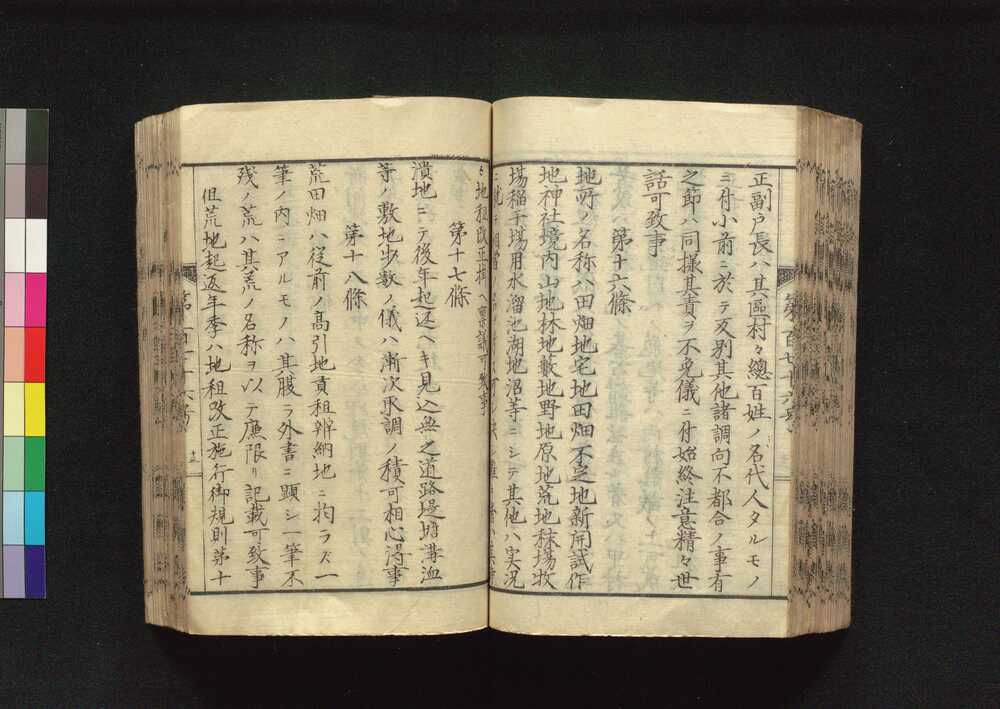 正副戸長ハ其區村々總百姓ノ名代人タルモノ
ニ付小前ニ於テ反別其他諸調向不都合ノ事有
之節ハ同様其責ヲ不免儀ニ付始終注意精々世
話可致事
第十六條
地所ノ名称ハ田畑地宅地田畑不定地新開試作
地神社境内山地林地藪地野地原地荒地秣場牧
場稲干場用水溜池湖地沼等ニシテ其他ハ実况
第十七條
潰地ニテ後年起返ヘキ見込無之道路堤塘溝洫
等ノ敷地歩数ノ儀ハ漸次取調ノ積可相心得事
第十八條
荒田畑ハ従前ノ高引地貢租辨納地ニ拘ラズ一
筆ノ内ニアルモノハ其限ラ外書ニ顕シ一筆不
残ノ荒ハ其荒ノ名称ヲ以テ廉限リ記載可致事
但荒地起返年季ハ地租改正施行御規則第十